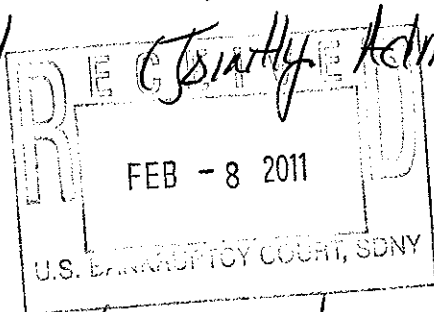 (Jointly Adm
RECEIVED
FEB - 8 2011
U.S. BANKRUPTCY COURT, SDNY